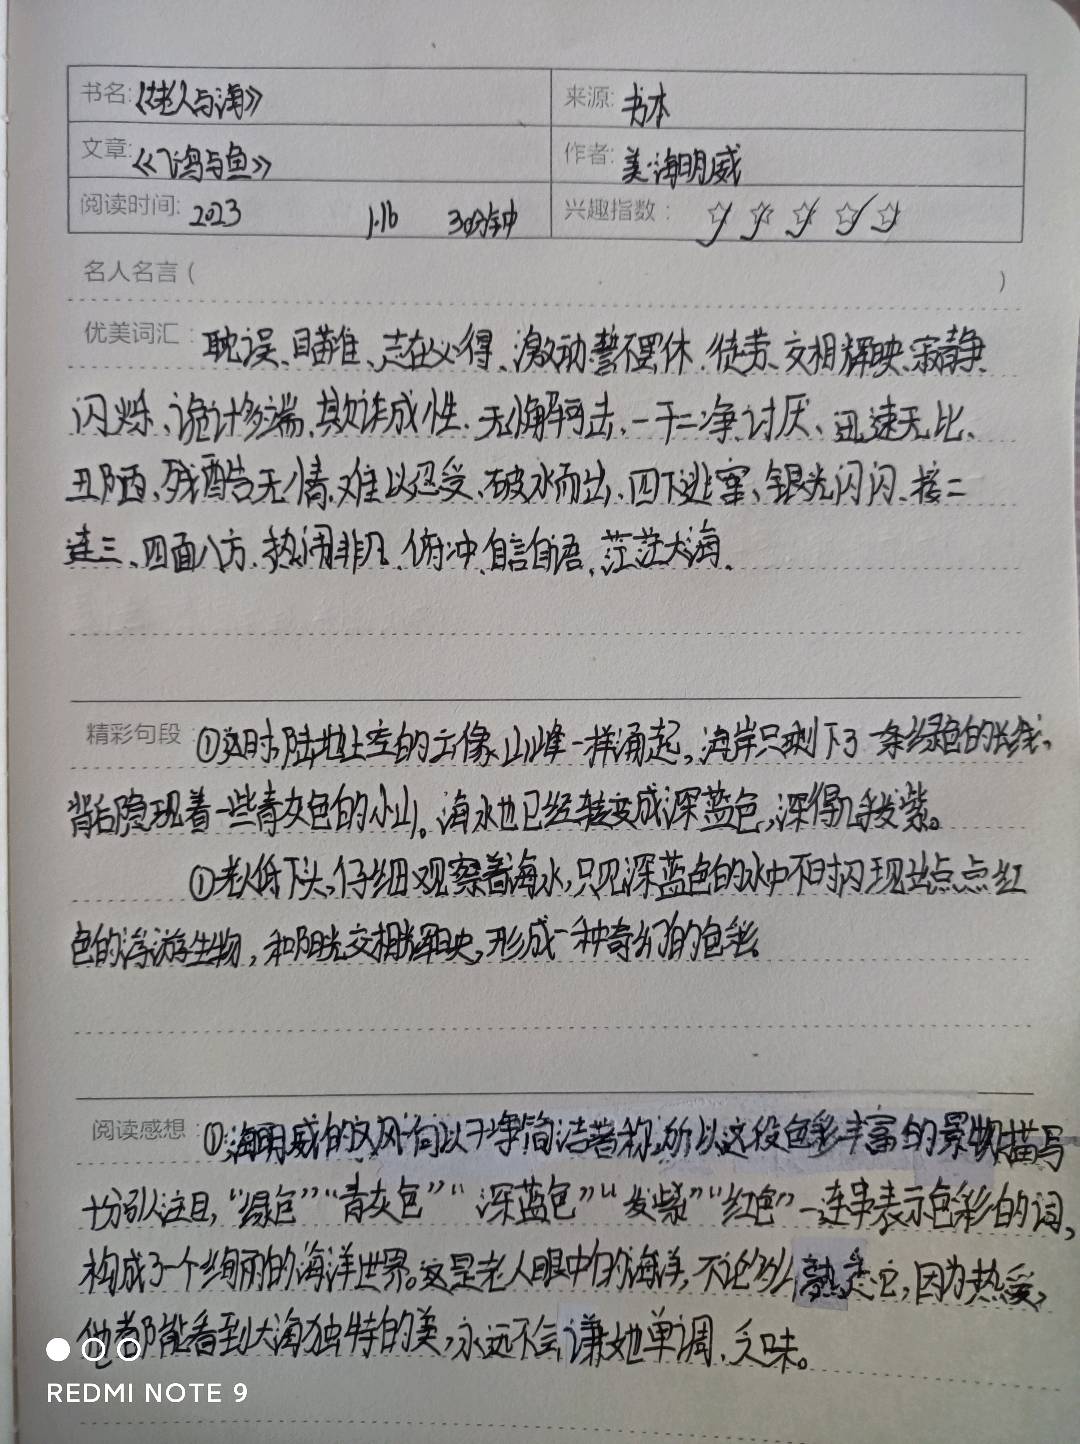 书名:《老人与海》 来源:书本
文章:《飞鸟与鱼》 作者:美·海明威
阅读时间: 2023 1.16 30分钟 兴趣指数: ☆☆☆☆☆
名人名言( )
优美词汇: 耽误、目难、志在必得、激动、誓不罢休、徒劳、交相辉映、寂静、
闪烁、诡计多端、欺诈成性、无懈可击、一干二净、讨厌、迅速无比、
丑陋、残酷无情、难以忍受、破水而出、四下逃窜、银光闪闪、接二
连三、四面八方、热闹非凡、俯冲、自言自语、茫茫大海、
精彩句段: ①这时,陆地上空的云像山峰一样涌起,海岸只剩下了一条绿色的长线,
背后隐现着一些青灰色的小山。海水也已经转变成深蓝色,深得几乎发紫。
①老人低下头,仔细观察着海水,只见深蓝色的水中不时闪现出点点红
色的浮游生物,和阳光交相辉映,形成一种奇幻的色彩。
阅读感想: ①海明威的文风向以干净简洁著称,所以这段色彩丰富的景物描写
十分引人注目,“绿色”“青灰色”“深蓝色”“发紫”“红色”一连串表示色彩的词,
构成了一个绚丽的海洋世界。这是老人眼中的海洋,不论多么熟悉它,因为热爱,
他都能看到大海独特的美,永远不会嫌她单调、乏味。
REDMI NOTE 9